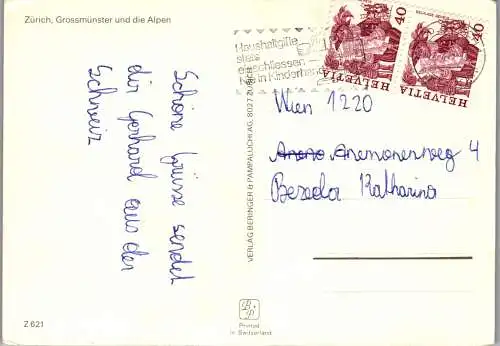 Zürich, Grossmünster und die Alpen
Haushaltgifte
stets
verschliessen
Nie in Kinderhand
HELVETIA 40
HELVETIA 40
Schöne Grüsse sendet
dir Gerhard aus der
Schweiz
Wien 1220
Anemonenweg 4
Katharina
VERLAG BERINGER & PAMPALUCHI AG, 8027 ZÜRICH
Z 621
Printed
in Switzerland